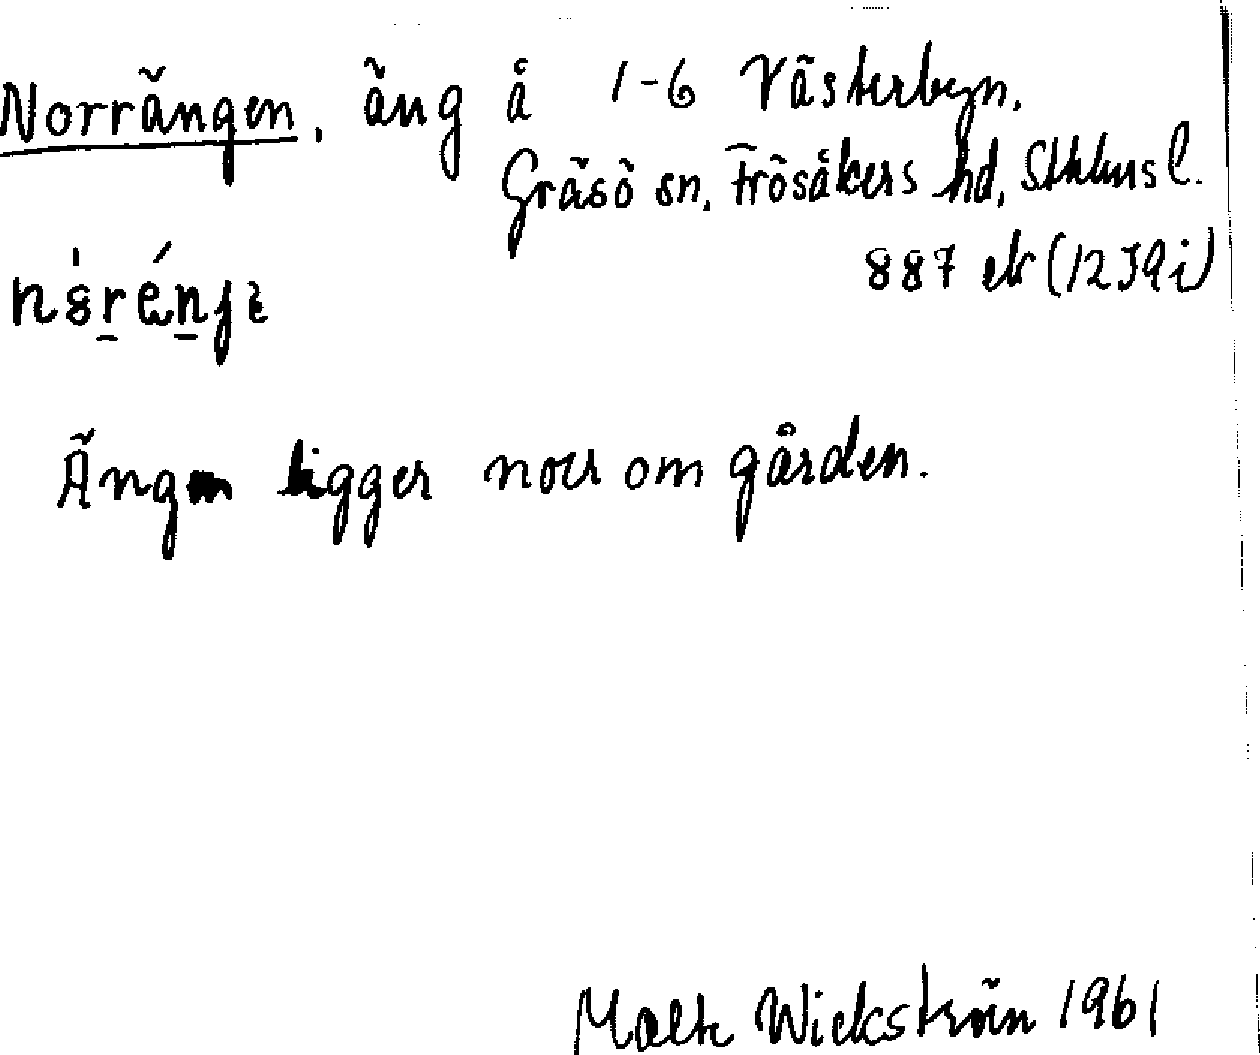 Norrängen, äng å 1-6 Västerbyn.
Gräsö sn, Frösåkers hd, Sthlms l.
887 ek (12J9i)
Ängen ligger norr om gården.
Malte Wickström 1961